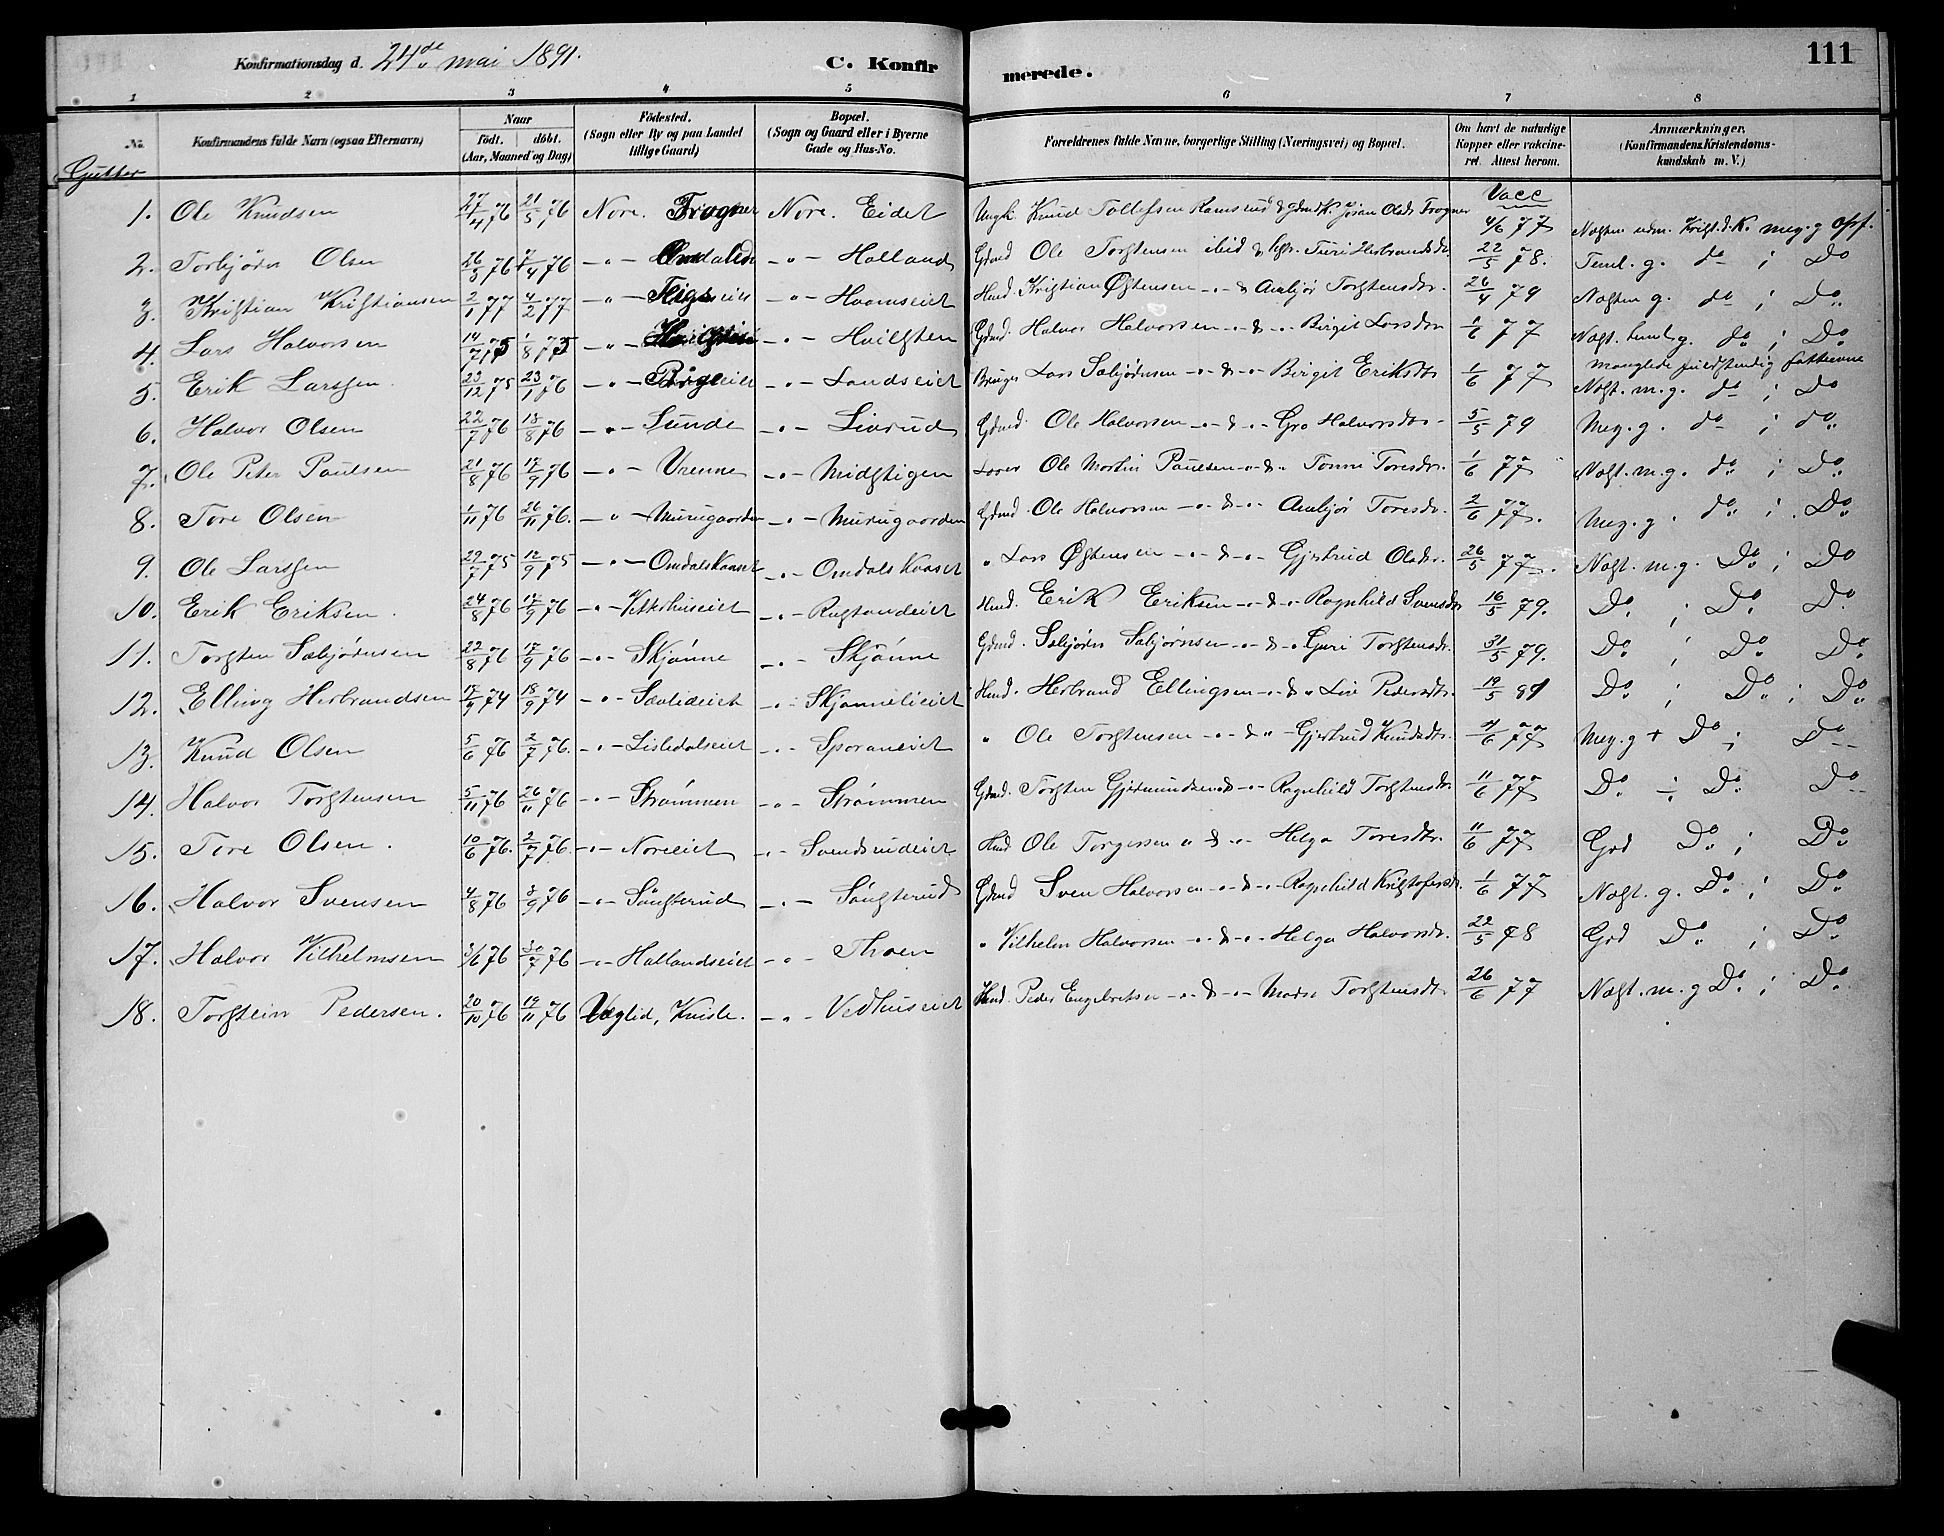 Konfirmationsdag d. 24de mai 1891.
C. Konfirmerede.
111
1 2 3 4 5 6 7 8
No. Konfirmandens fulde Navn (ogsaa Efternavn) Naar født. døbt. (Aar, Maaned og Dag) Fødested. (Sogn eller By og paa Landet tillige Gaard) Bopæl. (Sogn og Gaard eller i Byerne Gade og Hus-No. Forældrenes fulde Navne, borgerlige Stilling (Næringsvei) og Bopæl. Om havt de naturlige Kopper eller vakcineret. Attest herom. Anmærkninger. (Konfirmandens Kristendomskundskab m. V.)
Gutter
Vacc
1. Ole Knudsen 27/4 76 21/5 76 Nore. Frogner Nore. Eidet Ungk. Knud Tollefsen Ramsrud & Gdmdk. Jøran Olsdr. Frogner 4/6 77 Nogten udm. Krist.d.K. meg. g Opf.
2. Torbjørn Olsen 26/3 76 7/4 76 -"- Omdalen -"- Halland Gdmd Ole Torstensen ibid & hstr. Turi Herbrandsdr. 22/5 78. Teml. g. do ; Do
3. Kristian Kristiansen 2/1 77 4/2 77 -"- -"- Hvamseiet Hmd. Kristian Østensen -"- & Ambjør Torstensdr. 26/4 79 Nogten g. do ; Do
4. Lars Halvorsen 14/7 75 1/8 75 -"- -"- Hvilsten Gdmd. Halvor Halvorsen -"- & -"- Birgit Larsdr 1/6 77 Nogt. teml. g. do ; Do
5. Erik Larssen. 23/12 75 23/1 76 -"- -"- Landseiet Bruger Lars Sæbjørnsen -"- & -"- Birgit Eriksdr 1/6 77 manglede fuldstændig fatteevne Nogt. m. g. do ; Do
6. Halvor Olsen 22/7 76 18/8 76 -"- Sunde -"- Livrud Gdmd. Ole Halvorsen -"- & -"- Gro Halvorsdr. 5/5 79 Meg. g. do ; do
7. Ole Peter Paulsen 21/8 76 17/9 76 -"- Vrenne -"- Midstigen Ole Martin Paulsen -"- & -"- Tonni Toresdr. 1/6 77 Nogt. m. g. do ; Do
8. Tore Olsen 1/11 76 26/11 76. -"- Murugaarden -"- Murugaarden Gdmd. Ole Halvorsen -"- & -"- Ambjør Toresdr. 2/6 77. Meg. g. do ; Do
9. Ole Larssen 29/7 75 12/9 75 -"- Omdalskaaset -"- Omdalskaaset " Lars Østensen -"- & -"- Gjertrud Olsdr. 26/5 77. Nogt. m. g. Do ; Do
10. Erik Eriksen. 24/8 76 17/9 76 -"- Vetterhuseiet -"- Rustandeiet Hmd. Erik Eriksen -"- & -"- Ragnhild Svensdr 16/5 79. Do ; Do Do
11. Torsten Sæbjørnsen 22/8 76 17/9 76 -"- Skjønne -"- Skjønne Gdmd. Sebjørn Sæbjørnsen -"- & -"- Guri Torstensdr. 31/5 79. Do ; Do Do
12. Elling Herbrandsen 17/9 74 18/9 74 -"- Sævlideiet -"- Skjønnelieiet Hmd. Herbrand Ellingsen -"- & " Live Pedersdr. 19/5 81 Do ; Do ; Do
13. Knud Olsen 5/6 76 2/7 76. -"- Lisledalseiet -"- Sporaneiet " Ole Torstensen -"- & -"- Gjertrud Knudsdr. 4/6 77 Meg. g + Do ; Do
14. Halvor Torstensen 5/11 76 26/11 76. -"- Strømmen -"- Strømmen Gdmd. Torsten Gjermundsen & -"- Ragnhild Torstensdr. 11/6 77 Do ; Do Do
15. Tore Olsen. 10/6 76. 2/7 76. -"- Noreeiet -"- Svendsrudeiet Hmd Ole Torgersen " & -"- Helga Toresdtr. 11/6 77 God Do ; Do
16. Halvor Svensen 4/8 76 3/9 76 -"- Sønsterud -"- Sønsterud Gdmd Sven Halvorsen -"- & -"- Ragnhild Kristofersdr. 1/6 77 Nogt. g. Do ; Do
17. Halvor Vilhelmsen 3/6 76 30/7 76 -"- Hallandseiet -"- Thoen " Vilhelm Halvorsen -"- & -"- Helga Halvorsdr. 22/5 78 God Do ; Do
18. Torstein Pedersen. 20/10 76 19/11 76 Veglid, Kvisle. -"- Vedhuseiet Hmd. Peder Engebretsen -"- & -"- Maren Torstensdr 26/6 77 Nogt. m. g Do ; Do